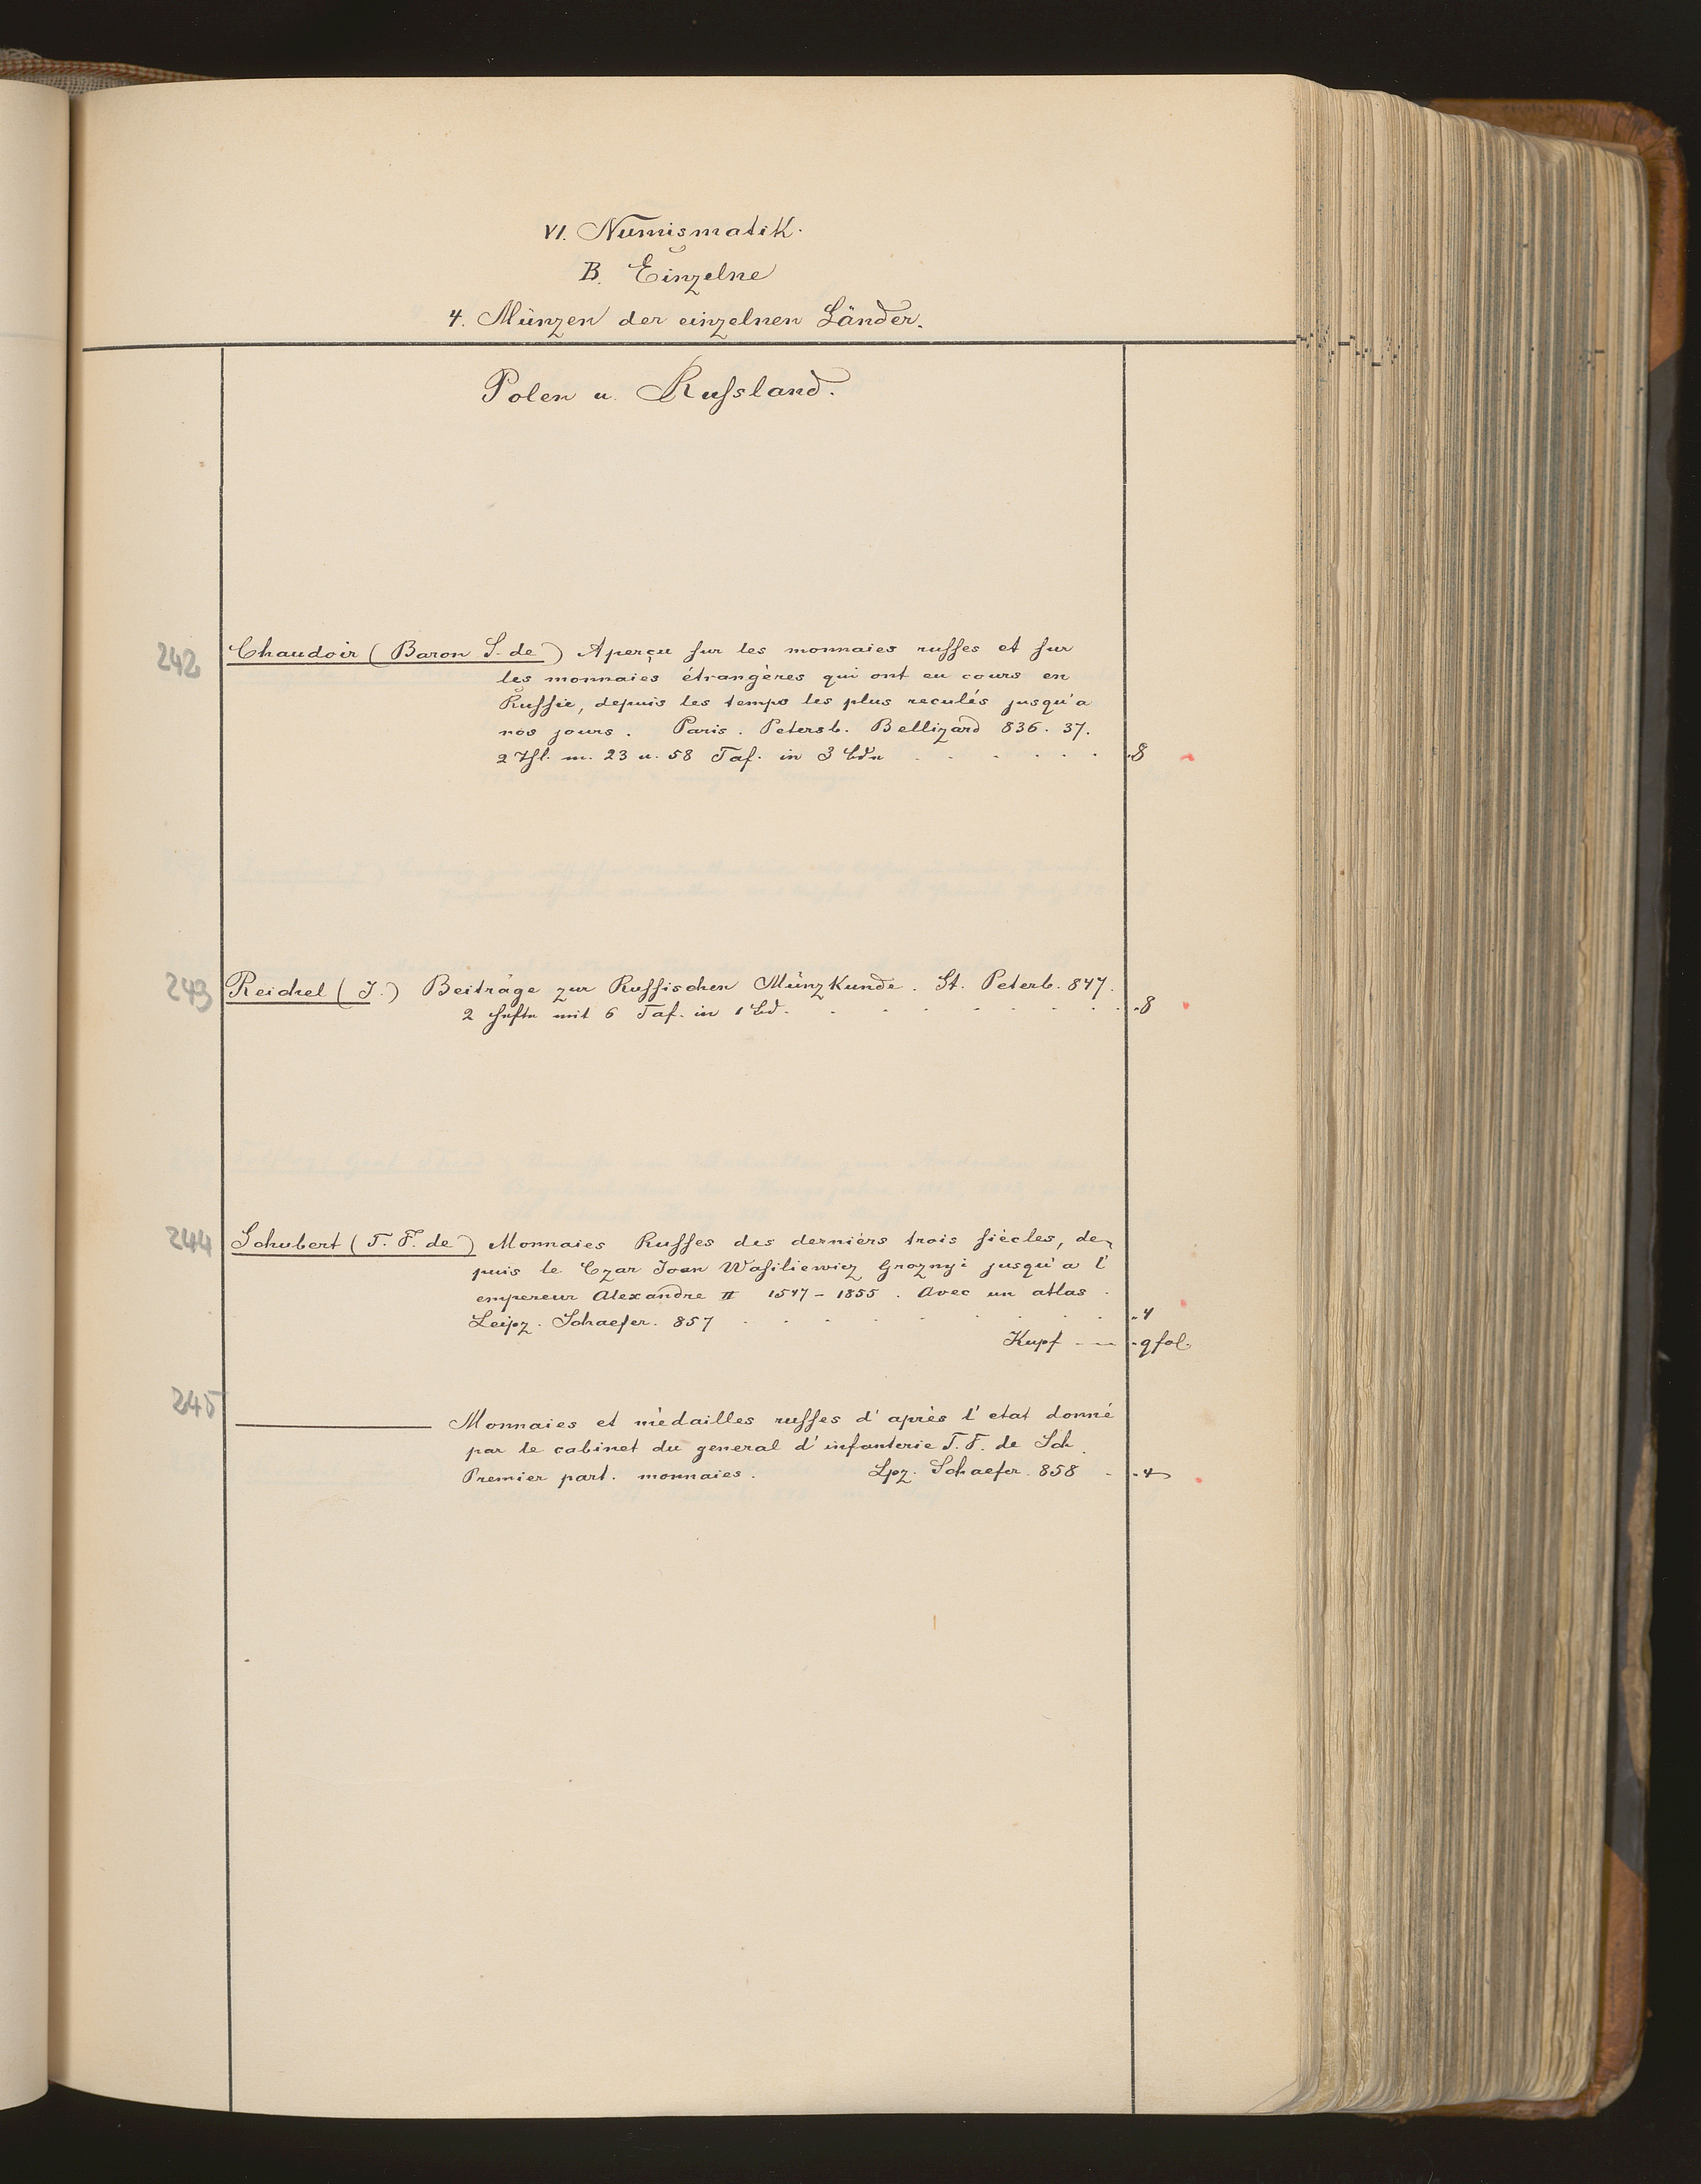 VI. Numismatik.
B. Einzelne
4. Münzen der einzelnen Länder.
Polen u. Ruſsland.
242 Chaudoir (Baron S. de) Aperçu sur les monnaies ruſses et sur
les monnaies étrangères qui ont eu cours en
Ruſsie, depuis les temps les plus reculés jusqu'a
nos jours. Paris. Petersb. Bellizard 836. 37.
2 Thl. m. 23 u. 58 Taf. in 3 Bdn . . . . . 8
243 Reichel (J.) Beiträge zur Ruſsischen Münzkunde. St. Peterb. 847.
2 Hefte mit 6 Taf. in 1 Bd. . . . . . . . 8
244 Schubert (T. F. de) Monnaies Ruſses des derniérs trois siècles, de-
puis le Czar Joan Wasiliewicz Groznyi jusqu'a l'
empereur Alexandre II 1547 - 1855. Avec un atlas.
Leipz. Schaefer. 857 . . . . . . . . 4
Kupf - — gfol.
245 ——— Monnaies et médailles ruſses d'après l'etat donné
par le cabinet du general d'infanterie T. F. de Sch.
Premier part. monnaies. Lpz. Schaefer. 858 . . 4